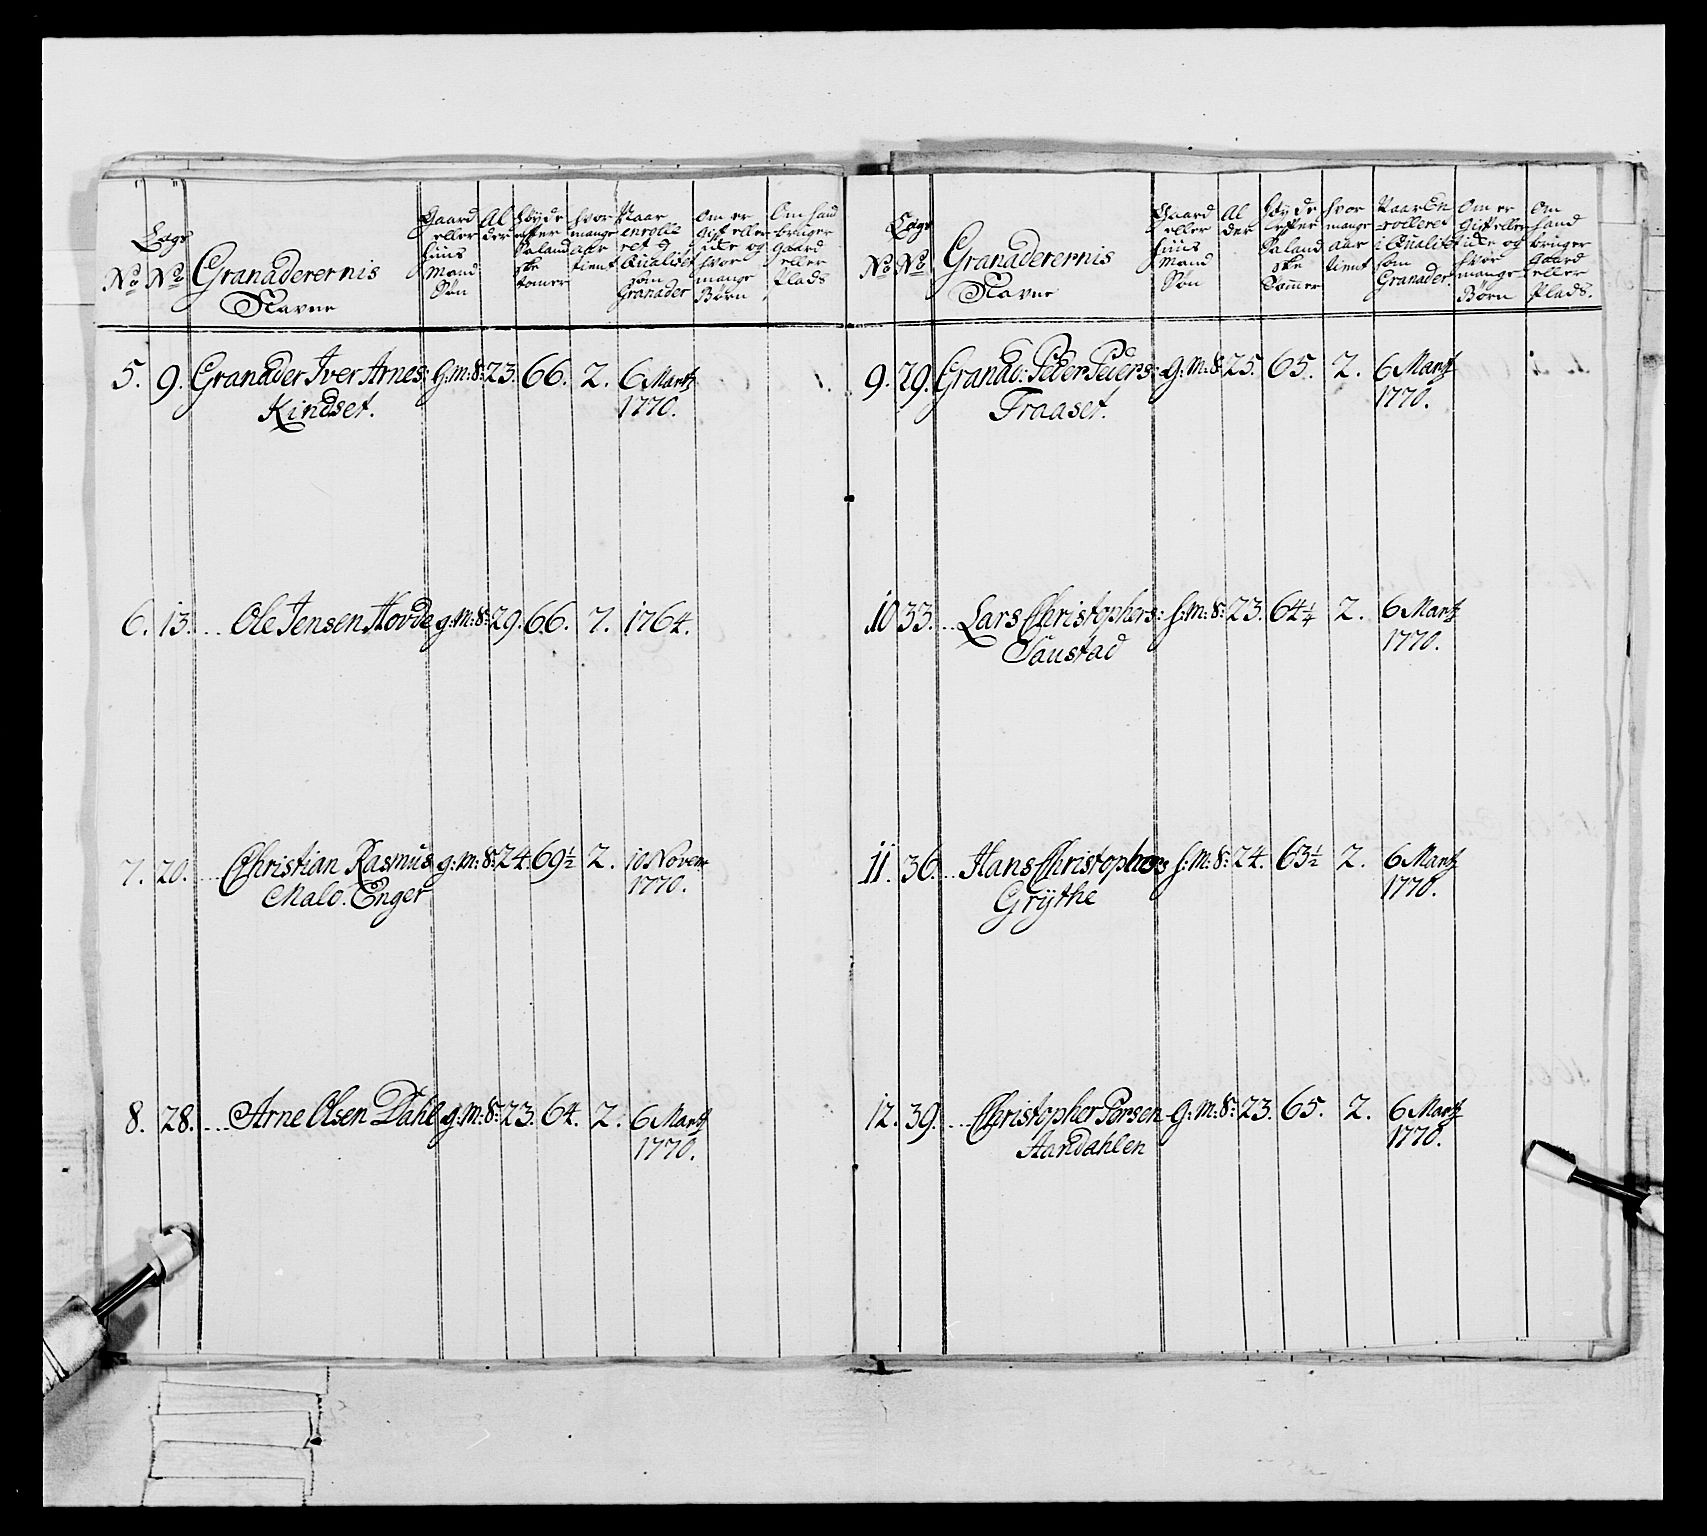 Lægs
No No Granaderernis Navne
Gaard eller Huus Mand Søn
Al der
Høyde efter Saland ske tomer
hvor mange aar tient
Naar enrolle ret i Qualitet som Granader
Om er Gift eller icke og hvor mange Børn
Om hand bruger gaard eller Plads
5. 9. Granader Iver Arnes: G:m:S: 23. 66. 2. 6 Martz
Kindset. 1770.
6. 13. Ole Jensen Hovde g:m:S: 29. 66. 7. 1764.
7. 20. Christian Rasmus: g:m:S: 24. 69½ 2. 10 Novem
Malo. Enger 1770.
8. 28. Arne Olsen Dahl g:m:S: 23. 64. 2. 6 Martz
1770.
Lægs
No No Granaderernis Navne
Gaard eller Huus Mand Søn
Al der
Høyde efter Saland ske Tommer
hvor mange aar tient
Naar En rolleret i Qualitet som Granader.
Om er Gift eller icke og hvor mange Børn
Om hand bruger Gaard eller Plads.
9. 29. Granad: Peder Peders: g:m:S: 25. 65. 2. 6 Martz
Fraaset. 1770.
10 33. Lars Christophers: h:m:S: 23. 64¼ 2. 6 Martz
Taustad 1770.
11. 36. Hans Christophers h:m:S: 24. 63½ 2. 6 Martz
Grÿthe 1770.
12. 39. Christopher Torsen G:m:S: 23. 65. 2. 6 Martz
Aandahlen 1770.